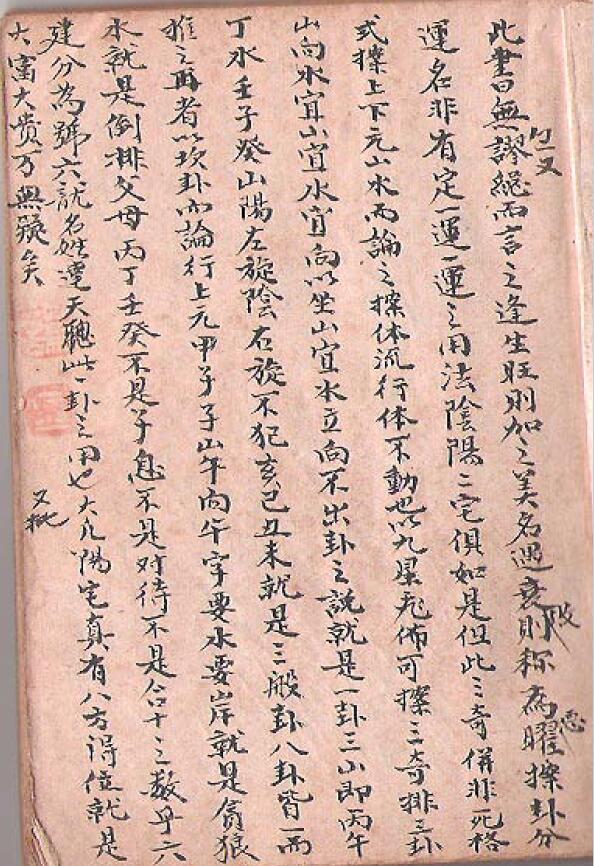 此書曰無謬總而言之逢生旺則加之美名遇衰則稱為曜揲卦分
運名非有定一運一運之用法陰陽二宅俱如是但此三奇併非死格
式揲上下元山水而論之揲体流行体不動也以九星飛佈可揲三奇排三卦
山向水宜山宜水宜向以坐山宜水立向不出卦之說就是一卦三山即丙午
丁水壬子癸山陽左旋陰右旋不犯亥己丑未就是三般卦八卦皆一而
推之再者以坎卦而論行上元甲子子山午向午字要水要岸就是貪狼
水就是倒排父母丙丁壬癸不是子息不是对待不是合十之数乎六
建分為號六說名姓達天聽此一卦之用也大凡陽宅真有八方得位就是
大富大贵万無疑矣
又
段
惡
又批